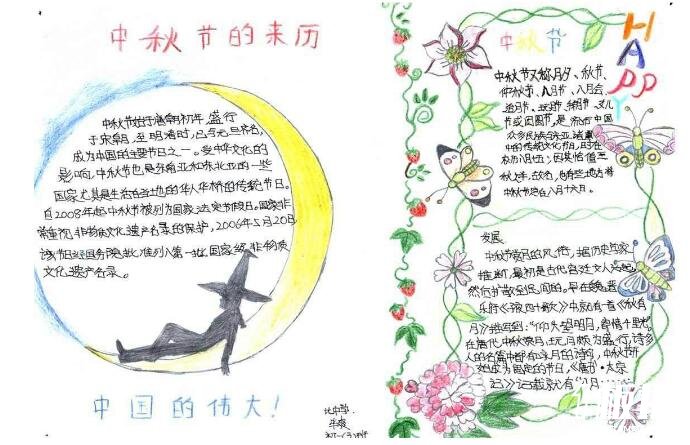 中秋节的来历
中秋节始于唐朝初年，盛行
于宋朝，至明清时，已与元旦齐名，
成为中国的主要节日之一。受中华文化的
影响，中秋节也是东南亚和东北亚的一些
国家尤其是生活在当地的华人华侨的传统节日。
自2008年起中秋节被列为国家法定节假日。国家非
常重视非物质文化遗产名录的保护，2006年5月20日，
该节日经国务院批准列入第一批国家级非物质
文化遗产名录。
中国的伟大！
中秋节
HAPPY
中秋节又称月夕、秋节、
仲秋节、八月节、八月会、
追月节、玩月节、拜月节、女儿
节或团圆节，是流行于中国
众多民族与东亚诸国
中的传统文化节日，时在
农历八月十五；因其恰值三
秋之半，故名，也有些地方将
中秋节定在八月十六。
发展：
中秋节赏月的风俗，据历史学家
推断，最初是古代宫廷文人兴起，
然后扩散到民间的。早在魏晋
乐府《子夜四十歌》中就有一首《秋有
月》描写到：“仰头望明月，寄情千里光”。
在唐代，中秋赏月、玩月颇为盛行，许多
人的名篇中都有咏月的诗句，中秋节开
始成为固定的节日，《唐书·太宗
记》记载就有“八月